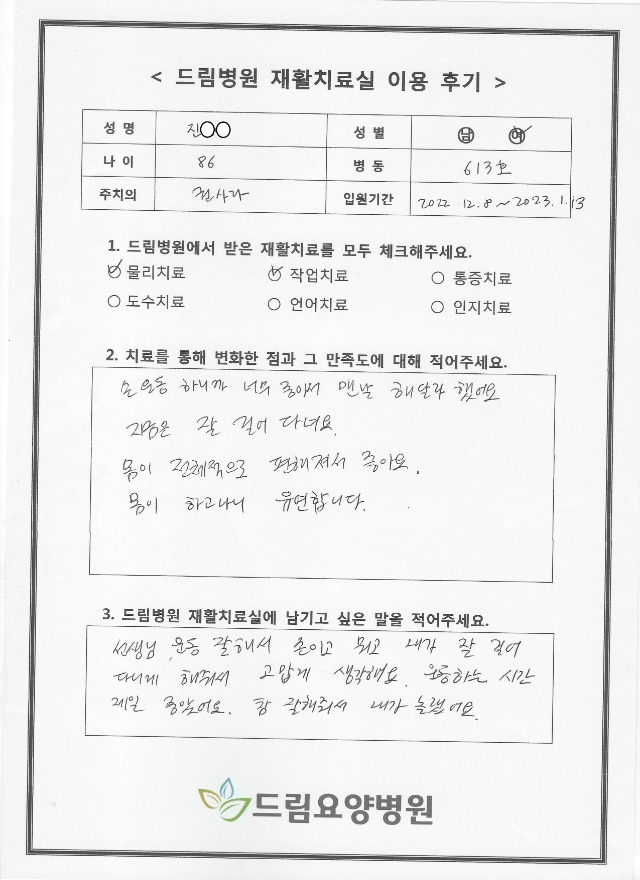 < 드림병원 재활치료실 이용 후기 >
성 명 진○○ 성 별 남 여
나 이 86 병 동 613호
주치의 전사라 입원기간 2022 12.8~2023.1.13
1. 드림병원에서 받은 재활치료를 모두 체크해주세요.
물리치료 작업치료 통증치료
도수치료 언어치료 인지치료
2. 치료를 통해 변화한 점과 그 만족도에 대해 적어주세요.
손 운동 하니까 너무 좋아서 맨날 해달라 했어요
지금은 잘 걸어 다녀요.
몸이 전체적으로 편해져서 좋아요.
몸이 하고나니 유연합니다.
3. 드림병원 재활치료실에 남기고 싶은 말을 적어주세요.
선생님 운동 잘해서 손이고 뭐고 내가 잘 걸어
다니게 해줘서 고맙게 생각해요. 운동하는 시간
제일 좋았어요. 참 잘해줘서 내가 놀랬어요.
드림요양병원